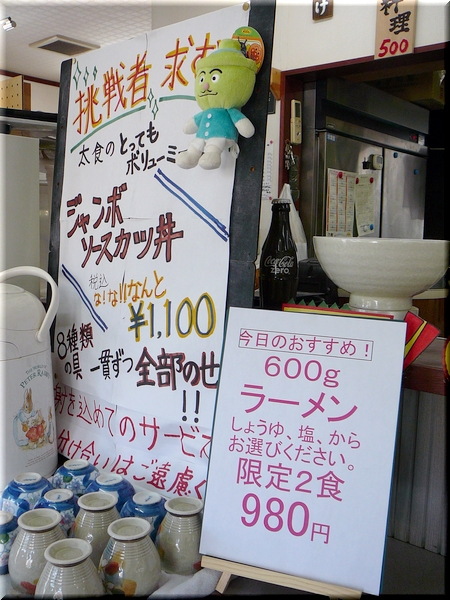 挑戦者 求む
太食のとっても
ボリューミー
ジャンボ
ソースカツ丼
税込
な!な!!なんと
¥1,100
8種類
の具 一貫ずつ 全部のせ
!!
身を込めてのサービス
分け合いはご遠慮く
今日のおすすめ!
600g
ラーメン
しょうゆ、塩、から
お選びください。
限定2食
980円
Coca-Cola
zero
PETER RABBIT
け
料理
500